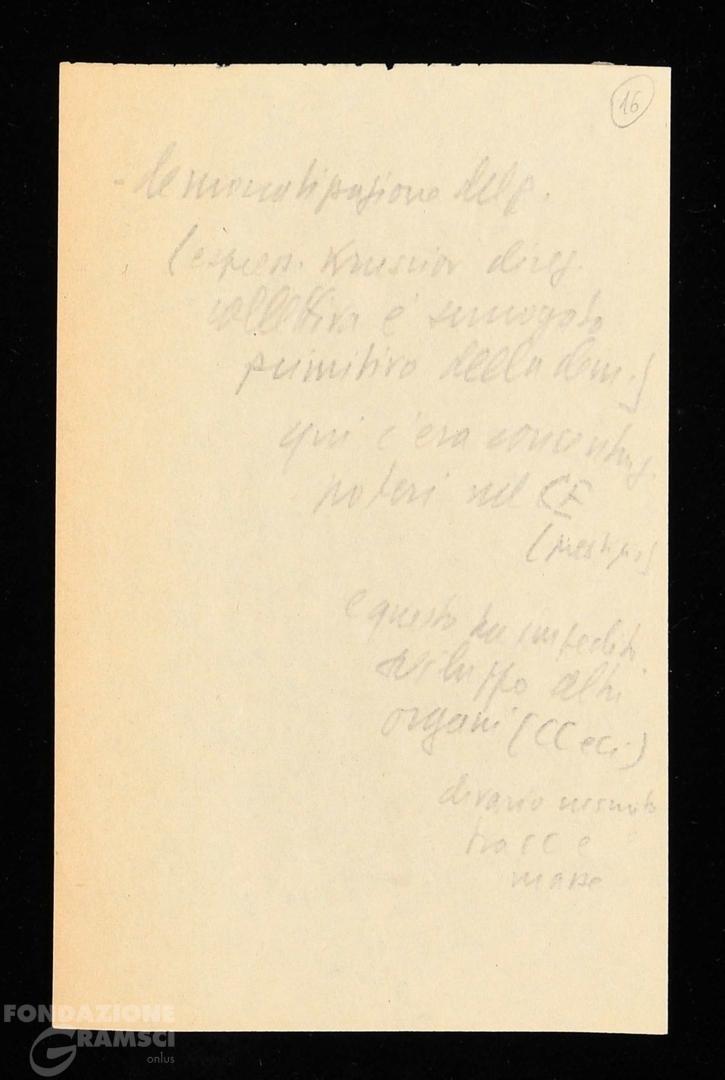 16
- democratizzazione del p.
(espress. Krusciov direz.
collettiva è surrogato
primitivo della dem.)
qui c'era concentraz.
poteri nel CE
e questo ha impedito
sviluppo altri
organi (CC ecc.)
divario
tra CC e
masse
FONDAZIONE
GRAMSCI
onlus